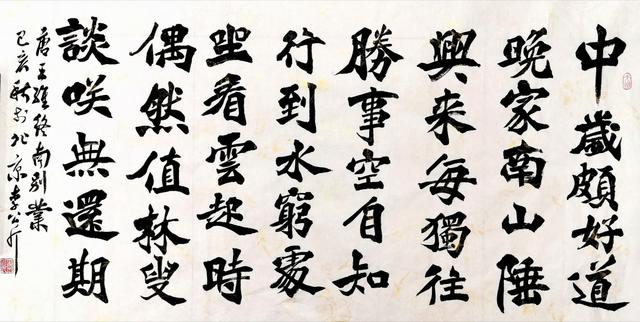 中歲頗好道
晚家南山陲
興來每獨往
勝事空自知
行到水窮處
坐看雲起時
偶然值林叟
談咲無還期
唐王維終南別業
己亥秋於北京李公介